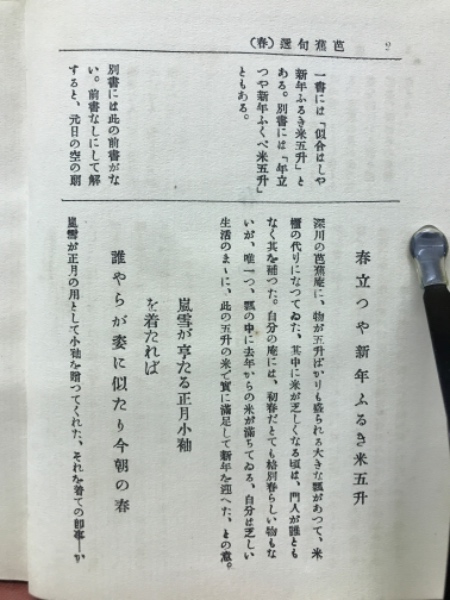 芭蕉句選（春）
2
一書には「似合はしや
新年ふるき米五升」と
ある。別書には「年立
つや新年ふくべ米五升」
ともある。
別書には此の前書がな
い。前書なしにして解
すると、元日の空の朗
春立つや新年ふるき米五升
深川の芭蕉庵に、物が五升ばかりも盛られる大きな瓢があつて、米
櫃の代りになつてゐた、其中に米が乏しくなる頃は、門人が誰とも
なく其を補つた。自分の庵には、初春だとても格別春らしい物もな
いが、唯一つ、瓢の中に去年からの米が満ちてゐる、自分は乏しい
生活のまゝに、此の五升の米で実に満足して新年を迎へた、との意。
嵐雪が亨たる正月小袖
を着たれば
誰やらが姿に似たり今朝の春
嵐雪が正月の用として小袖を贈つてくれた、それを着ての即事―か